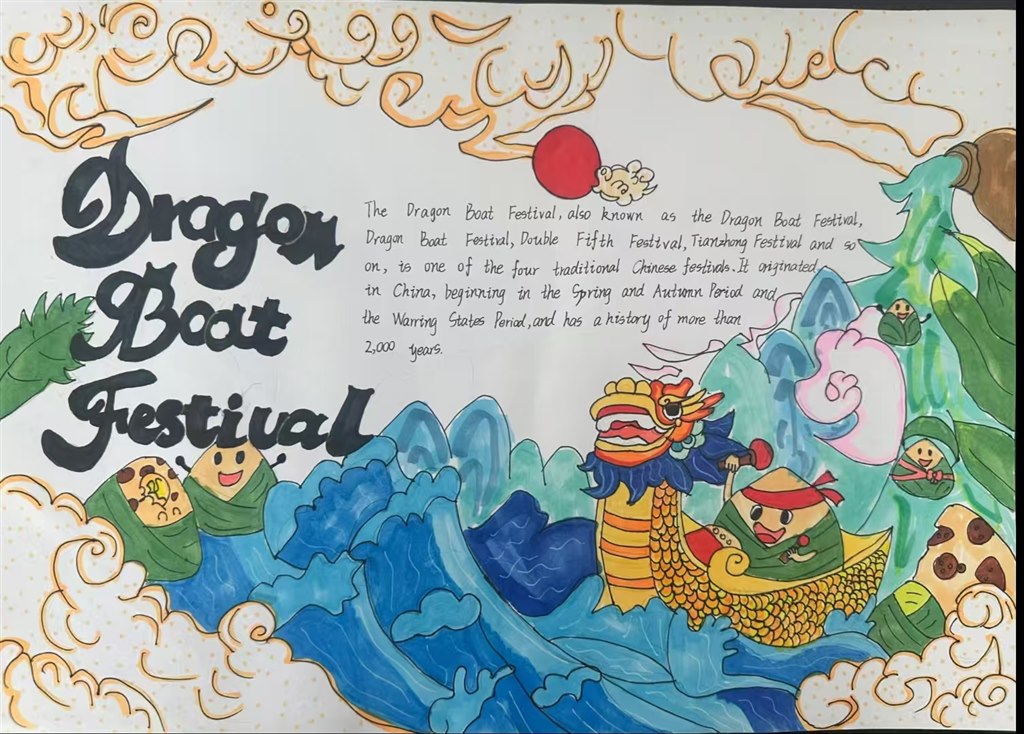 Dragon
Boat
Festival
The Dragon Boat Festival, also known as the Dragon Boat Festival,
Dragon Boat Festival, Double Fifth Festival, Tianzhong Festival and so
on, is one of the four traditional Chinese festivals. It originated
in China, beginning in the Spring and Autumn Period and
the Warring States Period, and has a history of more than
2,000 years.